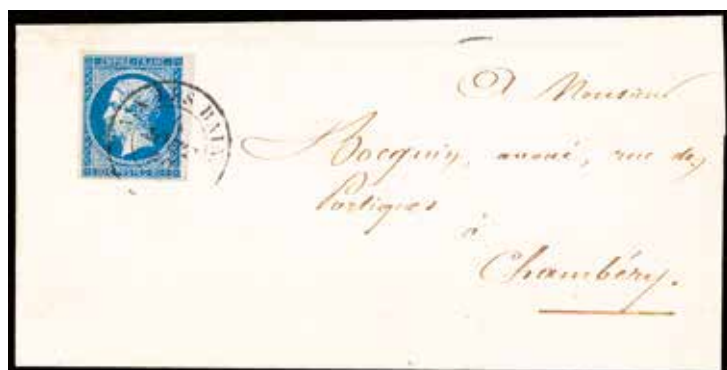 EMPIRE FRANC
LES BAINS
A Monsieur
Bocquin, avoué, rue des
Portiques
à
Chambéry.